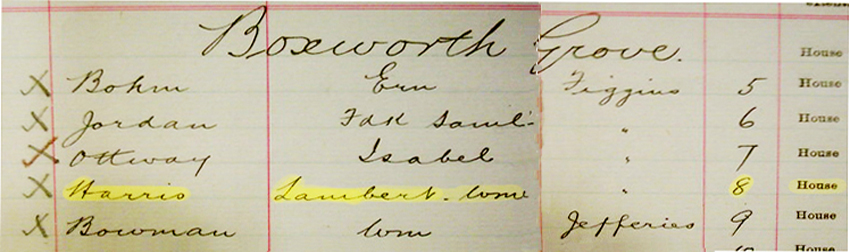 Boxworth Grove. House
X Bohm Ern Figgins 5 House
X Jordan Fdk Saml. " 6 House
X Ottway Isabel " 7 House
X Harris Lambert. Wm " 8 House
X Bowman Wm Jefferies 9 House
House